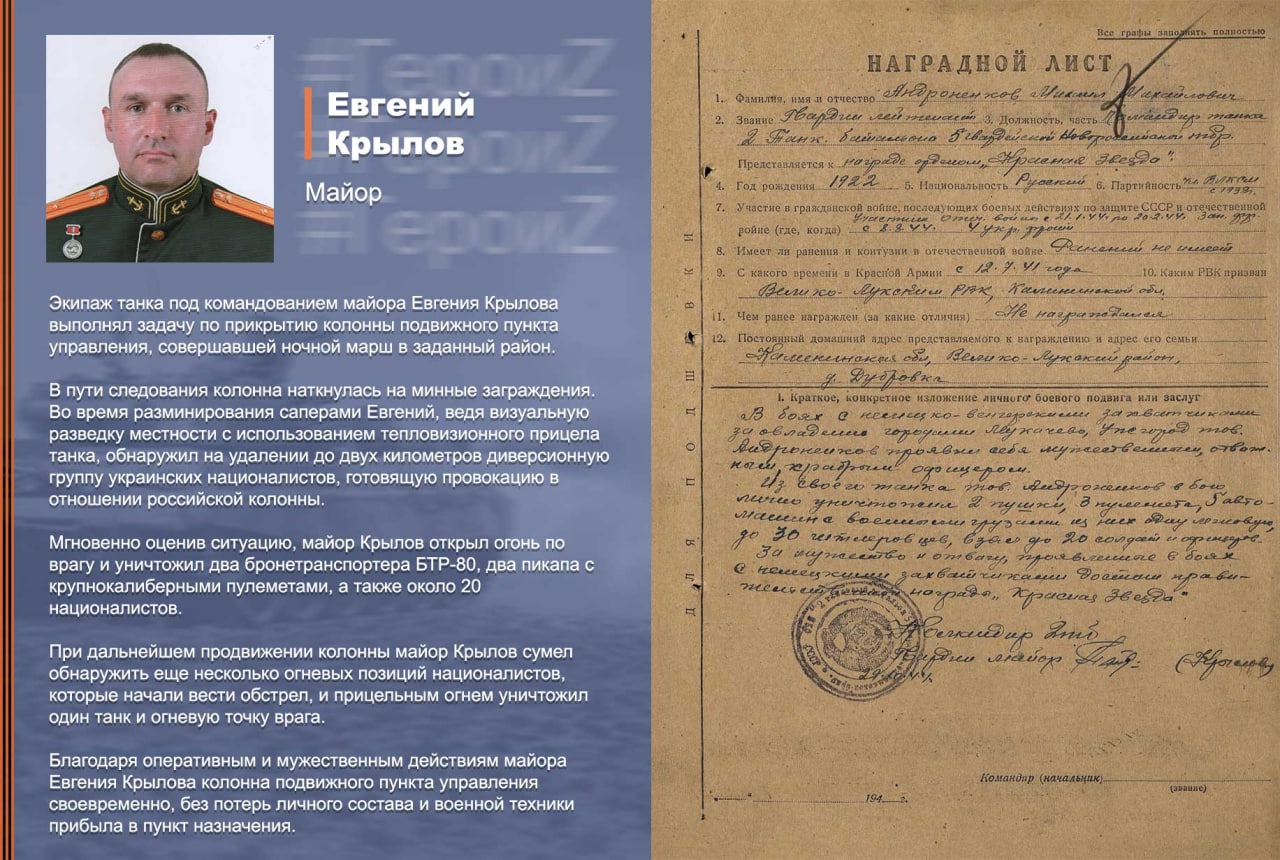 #ГероиZ
Евгений
Крылов
#ГероиZ
Майор
#ГероиZ
Экипаж танка под командованием майора Евгения Крылова
выполнял задачу по прикрытию колонны подвижного пункта
управления, совершавшей ночной марш в заданный район.
В пути следования колонна наткнулась на минные заграждения.
Во время разминирования саперами Евгений, ведя визуальную
разведку местности с использованием тепловизионного прицела
танка, обнаружил на удалении до двух километров диверсионную
группу украинских националистов, готовящую провокацию в
отношении российской колонны.
Мгновенно оценив ситуацию, майор Крылов открыл огонь по
врагу и уничтожил два бронетранспортера БТР-80, два пикапа с
крупнокалиберными пулеметами, а также около 20
националистов.
При дальнейшем продвижении колонны майор Крылов сумел
обнаружить еще несколько огневых позиций националистов,
которые начали вести обстрел, и прицельным огнем уничтожил
один танк и огневую точку врага.
Благодаря оперативным и мужественным действиям майора
Евгения Крылова колонна подвижного пункта управления
своевременно, без потерь личного состава и военной техники
прибыла в пункт назначения.
Все графы заполнять полностью
НАГРАДНОЙ ЛИСТ
1. Фамилия, имя и отчество Андроненков Михаил Михайлович
2. Звание Гвардии лейтенант 3. Должность, часть Командир танка
2 Танк. батальона 5 гвардейской Новороссийской тбр.
Представляется к награде орденом „Красная Звезда".
4. Год рождения 1922 5. Национальность Русский 6. Партийность чл ВЛКСМ
с 1939г.
7. Участие в гражданской войне, последующих боевых действиях по защите СССР и отечественной
Участник Отеч. войны с 21.1.44. по 20.2.44.
войне (где, когда) с 8.8.44. 4 укр. фронт
8. Имеет ли ранения и контузии в отечественной войне Ранений не имеет
9. С какого времени в Красной Армии с 12.7.41 года 10. Каким РВК призван
Велико-Лукским РВК, Калининской обл.
11. Чем ранее награжден (за какие отличия) Не награждался
12. Постоянный домашний адрес представляемого к награждению и адрес его семьи
Калининская обл, Велико-Лукский район,
д. Дубровка
ДЛЯ ПОДШИВКИ
I. Краткое, конкретное изложение личного боевого подвига или заслуг
В боях с немецко-венгерскими захватчиками
за овладение городами Мукачево, Ужгород тов.
Андроненков проявил себя мужественным, отваж-
ным, храбрым офицером.
Из своего танка тов. Андроненков в бою
лично уничтожил 2 пушки, 3 пулемета, 5 авто-
машин с военными грузами из них одну легковую,
до 30 гитлеровцев, взял до 20 солдат и офицеров.
За мужество и отвагу, проявленные в боях
с немецкими захватчиками достоин прави-
награды „Красная Звезда"
Командир
Гвардии майор (Крылов)
29.10.44.
Командир (начальник)
(звание)
" " 194 г.